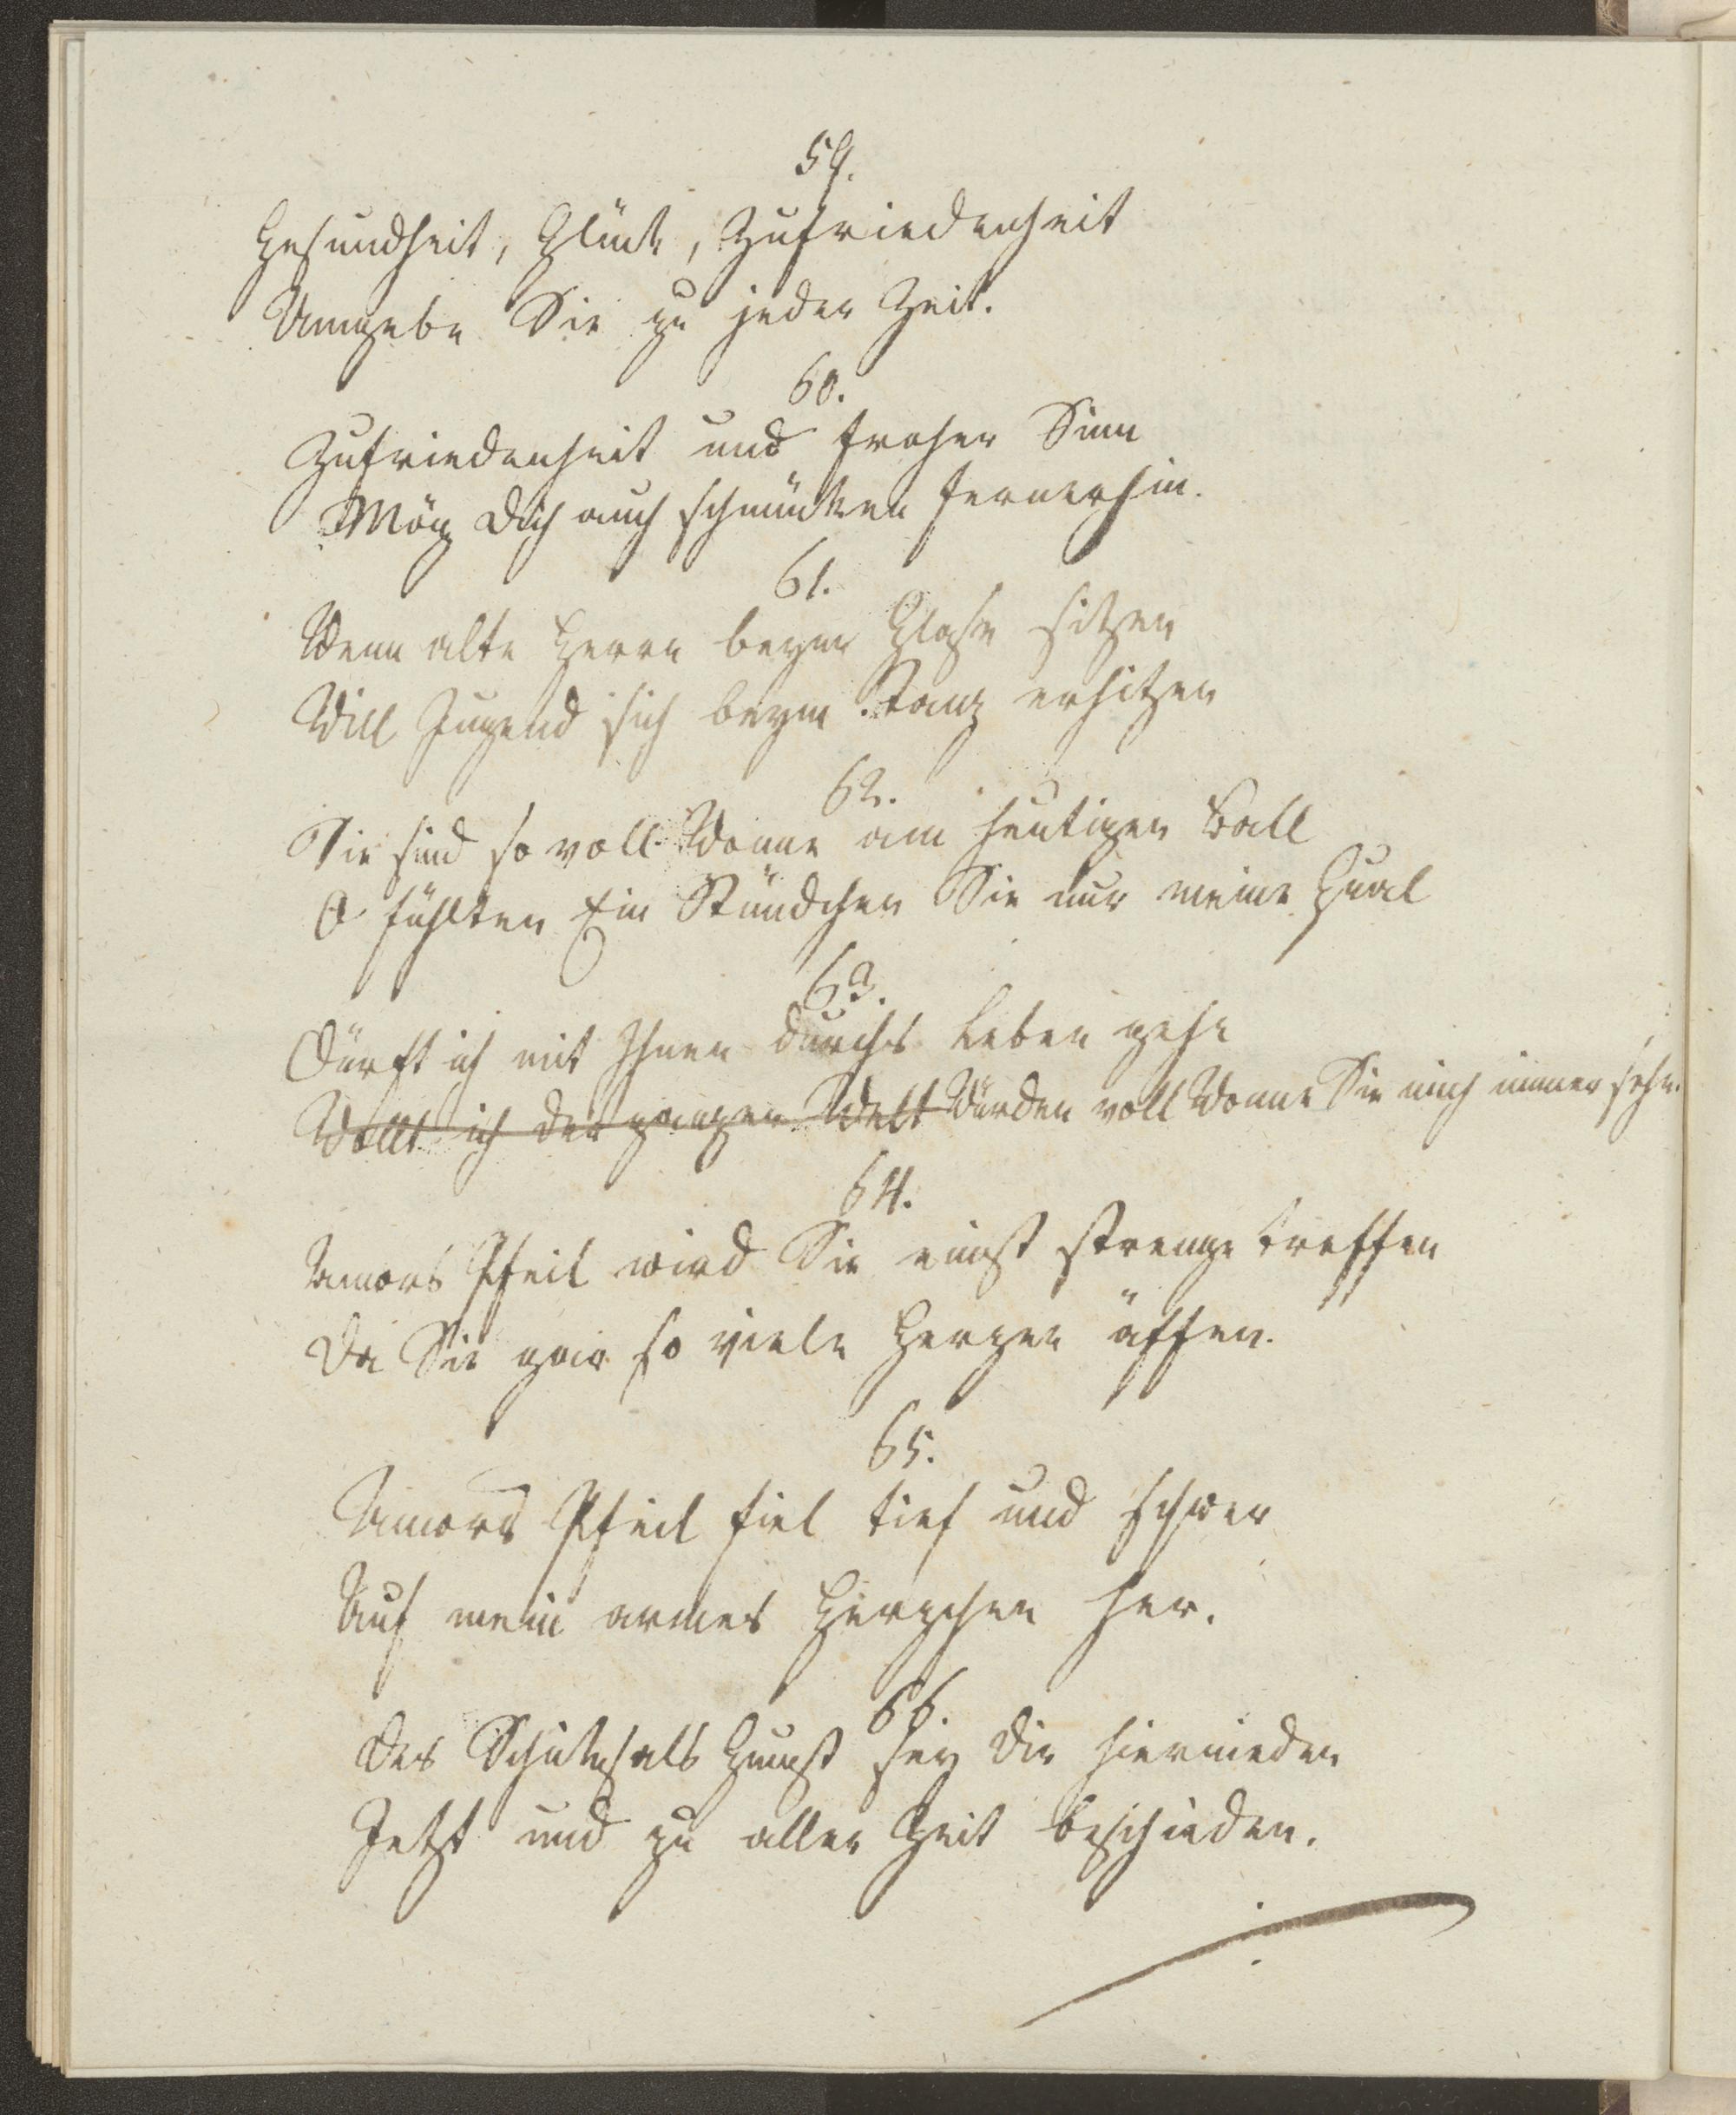 59.
Gesundheit, Glück, Zufriedenheit
Umgebe Sie zu jeder Zeit.
60.
Zufriedenheit und froher Sinn
Mög Dich auch schmücken fernerhin.
61.
Wenn alte Herrn beym Glase sitzen
Will Jugend sich beym Tanz erhitzen
62.
Sie sind so voll Wonne am heutigen Ball
O fühlten Ein Stündchen Sie nur meine Qual
63.
Dürft ich mit Ihnen durchs Leben gehn
Wollt ich der ganzen Welt Würden voll Wonne Sie mich immer sehn.
64.
Amors Pfeil wird Sie einst strenge treffen
Da Sie gar so viele Herzen äffen.
65.
Amors Pfeil fiel tief und schwer
Auf mein armes Herzchen her.
66.
Des Schicksals Gunst sey Dir hiernieden
Jetzt und zu aller Zeit beschieden.